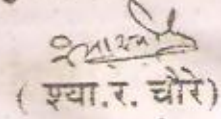 ( श्या.र. चौरे)